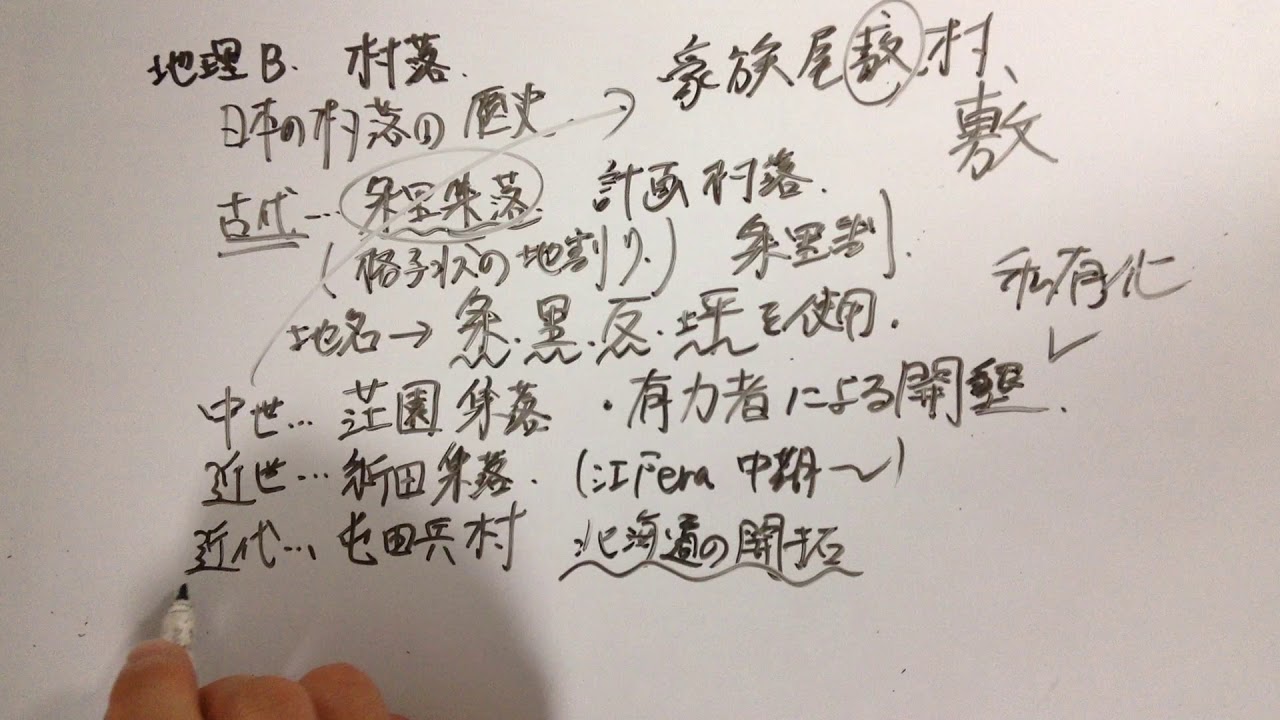 地理B. 村落.
日本の村落の歴史
豪族屋敷村、
敷
古代… 条里集落 計画村落.
(格子状の地割り.) 条里割.
地名→条.里.反.坪を使用.
私有化
中世… 荘園集落 ・有力者による開墾.
近世… 新田集落. (江戸era 中期〜)
近代… 屯田兵村 北海道の開拓